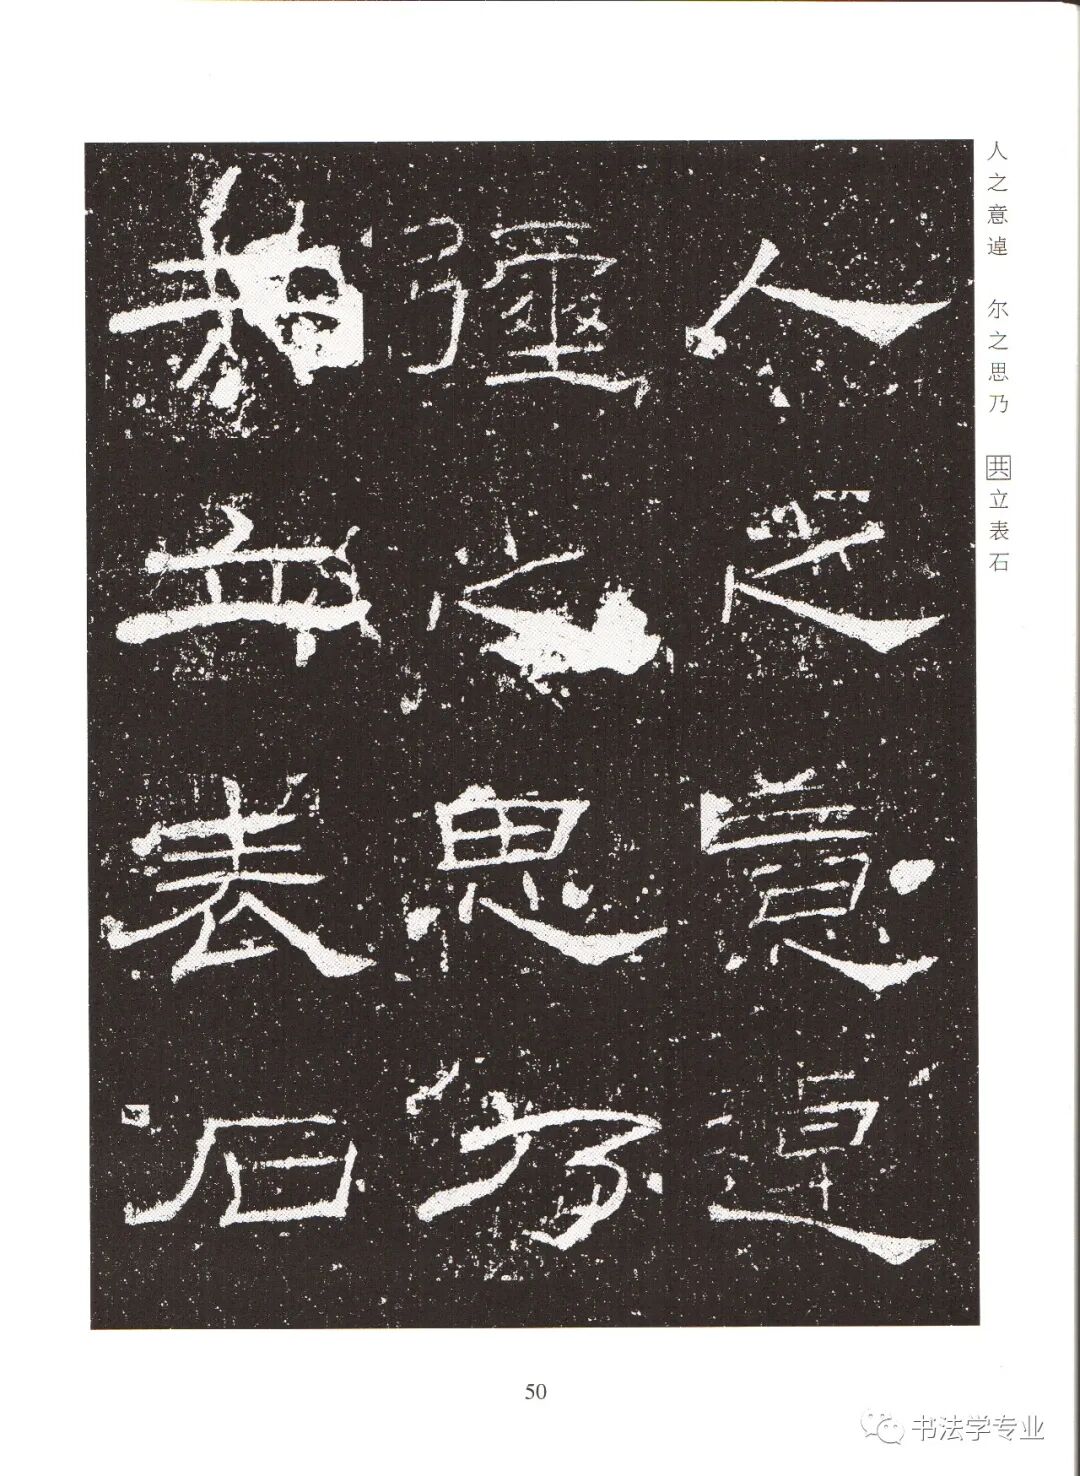 人之意逴 尔之思乃 共立表石
人之意逴
之思乃
立表石
50
书法学专业